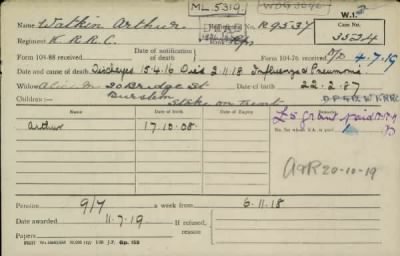 ML 5319
W.I.
Name Watkin Arthur No. R9537 Case No. 35524
Regiment K.R.R.C. Rfn
Date of notification of death
Form 104-88 received Form 104-76 received 4-7-19
Date and cause of death Discharged 15.4.16 Died 2.11.18 Influenza & Pneumonia
Widow Alice M 20 Bridge St Date of birth 22.2.87
Burslem
Children:— Stoke on Trent
Date of Birth Date of Expiry Date of Birth Date of Expiry
Arthur 17.10.08
£5 grant paid
A&R 20-10-19
Pension 9/7 a week from 6.11.18
Date awarded 11.7.19 If refused, reason
Papers